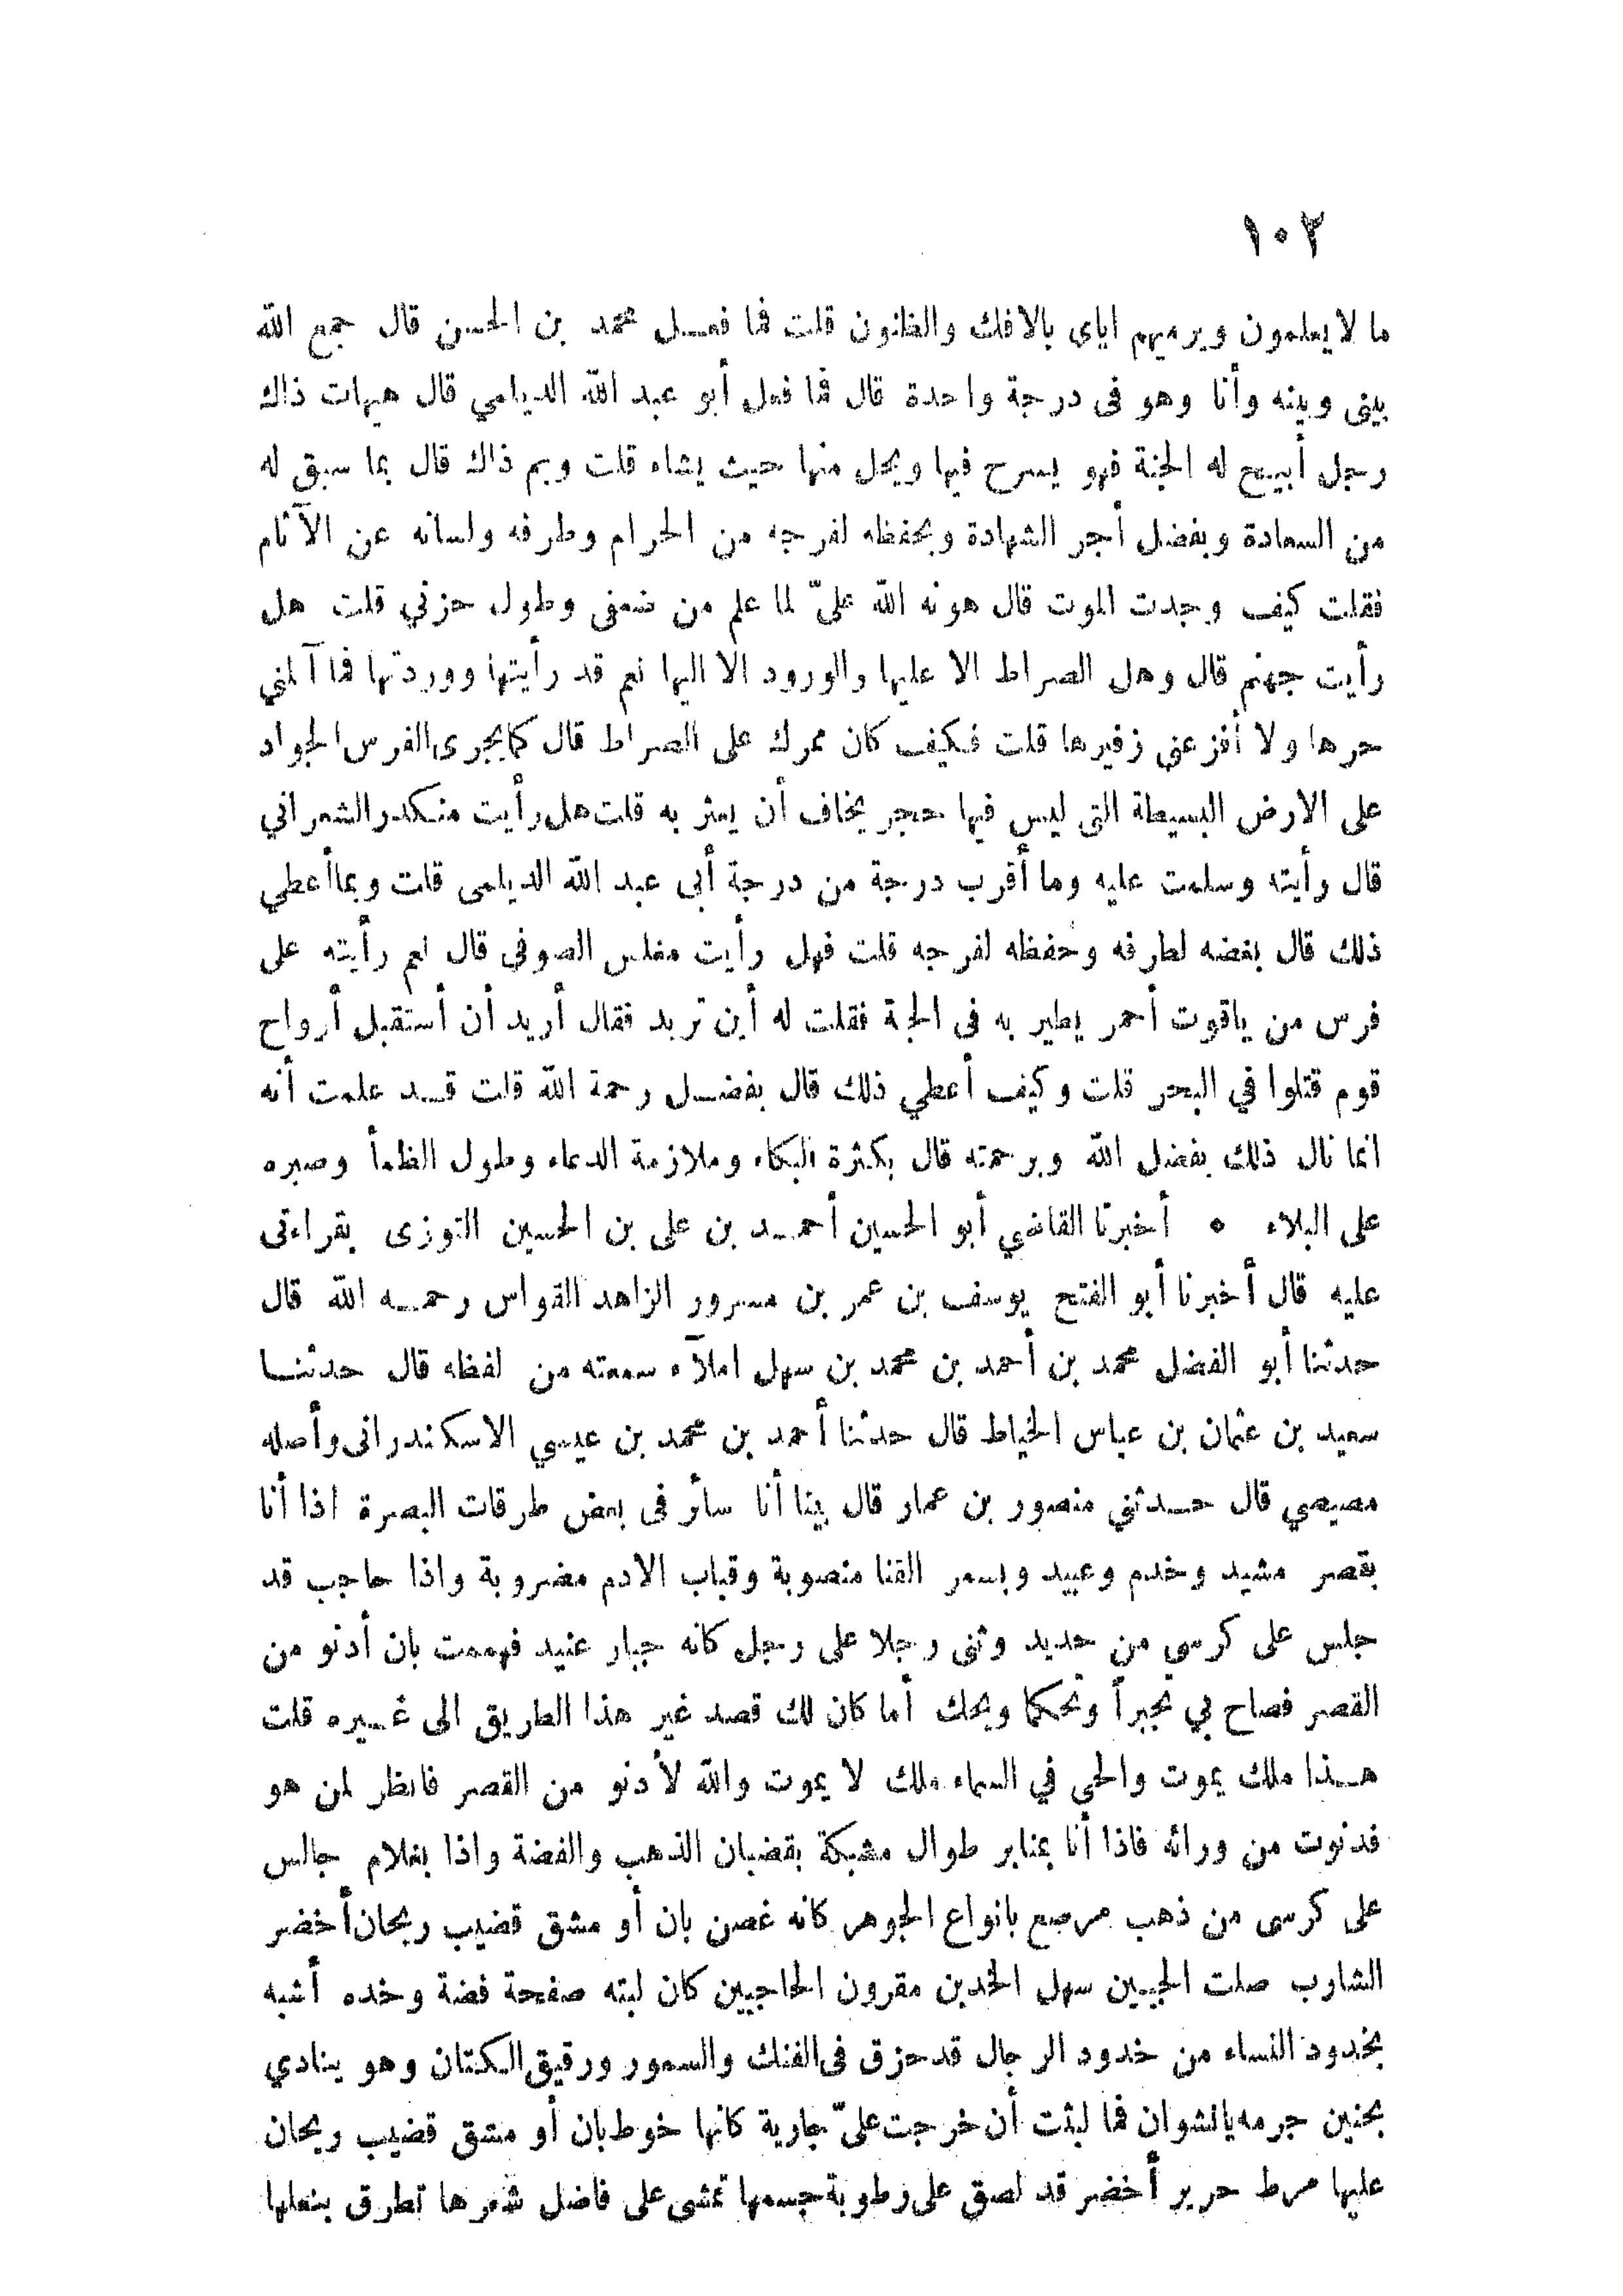 ١٠٢
ما لا يعلمون ويرميهم اياى بالافك والظنون قلت فما فعل محمد بن الحسن قال جمع الله
بينى وبينه وأنا وهو فى درجة واحدة قال فما فعل أبو عبد الله الديلمي قال هيهات ذاك
رجل أبيح له الجنة فهو يسرح فيها ويحل منها حيث يشاء قلت وبم ذاك قال بما سبق له
من السعادة وبفضل أجر الشهادة وبحفظه لفرجه من الحرام وطرفه ولسانه عن الآثام
فقلت كيف وجدت الموت قال هونه الله علىّ لما علم من ضعفى وطول حزني قلت هل
رأيت جهنم قال وهل الصراط الا عليها والورود الا اليها نعم قد رأيتها ووردتها فما آلمني
حرها ولا أفزعني زفيرها قلت فكيف كان ممرك على الصراط قال كما يجرى الفرس الجواد
على الارض البسيطة التى ليس فيها حجر يخاف أن يعثر به قلت هل رأيت منكدر الشعراني
قال رأيته وسلمت عليه وما أقرب درجة من درجة أبى عبد الله الديلمى قلت وبما أعطي
ذلك قال بغضه لطرفه وحفظه لفرجه قلت فهل رأيت مغلس الصوفى قال نعم رأيته على
فرس من ياقوت أحمر يطير به فى الجنة فقلت له أين تريد فقال أريد أن أستقبل أرواح
قوم قتلوا في البحر قلت وكيف أعطي ذلك قال بفضل رحمة الله قلت قد علمت أنه
انما نال ذلك بفضل الله وبرحمته قال بكثرة البكاء وملازمة الدعاء وطول الظمأ وصبره
على البلاء ٥ أخبرنا القاضي أبو الحسين أحمد بن على بن الحسين التوزى بقراءتى
عليه قال أخبرنا أبو الفتح يوسف بن عمر بن مسرور الزاهد القواس رحمه الله قال
حدثنا أبو الفضل محمد بن أحمد بن محمد بن سهل املآء سمعته من لفظه قال حدثنا
سعيد بن عثمان بن عباس الخياط قال حدثنا أحمد بن محمد بن عيسي الاسكندرانى وأصله
مصيصي قال حدثني منصور بن عمار قال بينا أنا سائر فى بعض طرقات البصرة اذا أنا
بقصر مشيد وخدم وعبيد وبسمر القنا منصوبة وقباب الادم مضروبة واذا حاجب قد
جلس على كرسى من حديد وثنى رجلا على رجل كانه جبار عنيد فهممت بان أدنو من
القصر فصاح بي تجبراً وتحكما ويحك أما كان لك قصد غير هذا الطريق الى غيره قلت
هذا ملك يموت والحى في السماء ملك لا يموت والله لأدنو من القصر فانظر لمن هو
فدنوت من ورائه فاذا أنا بمنابر طوال مشبكة بقضبان الذهب والفضة واذا بغلام جالس
على كرسى من ذهب مرصع بانواع الجوهر كانه غصن بان أو مشق قضيب ريحان أخضر
الشارب صلت الجبين سهل الخدين مقرون الحاجبين كان لبته صفحة فضة وخده أشبه
بخدود النساء من خدود الرجال قد حزق فى الفنك والسمور ورقيق الكتان وهو ينادي
بحنين جرمه يانشوان فما لبثت أن خرجت علىّ جارية كانها خوط بان أو مشق قضيب ريحان
عليها مرط حرير أخضر قد لصق على رطوبة جسمها تمشى على فاضل شعرها تطرق بنعلها